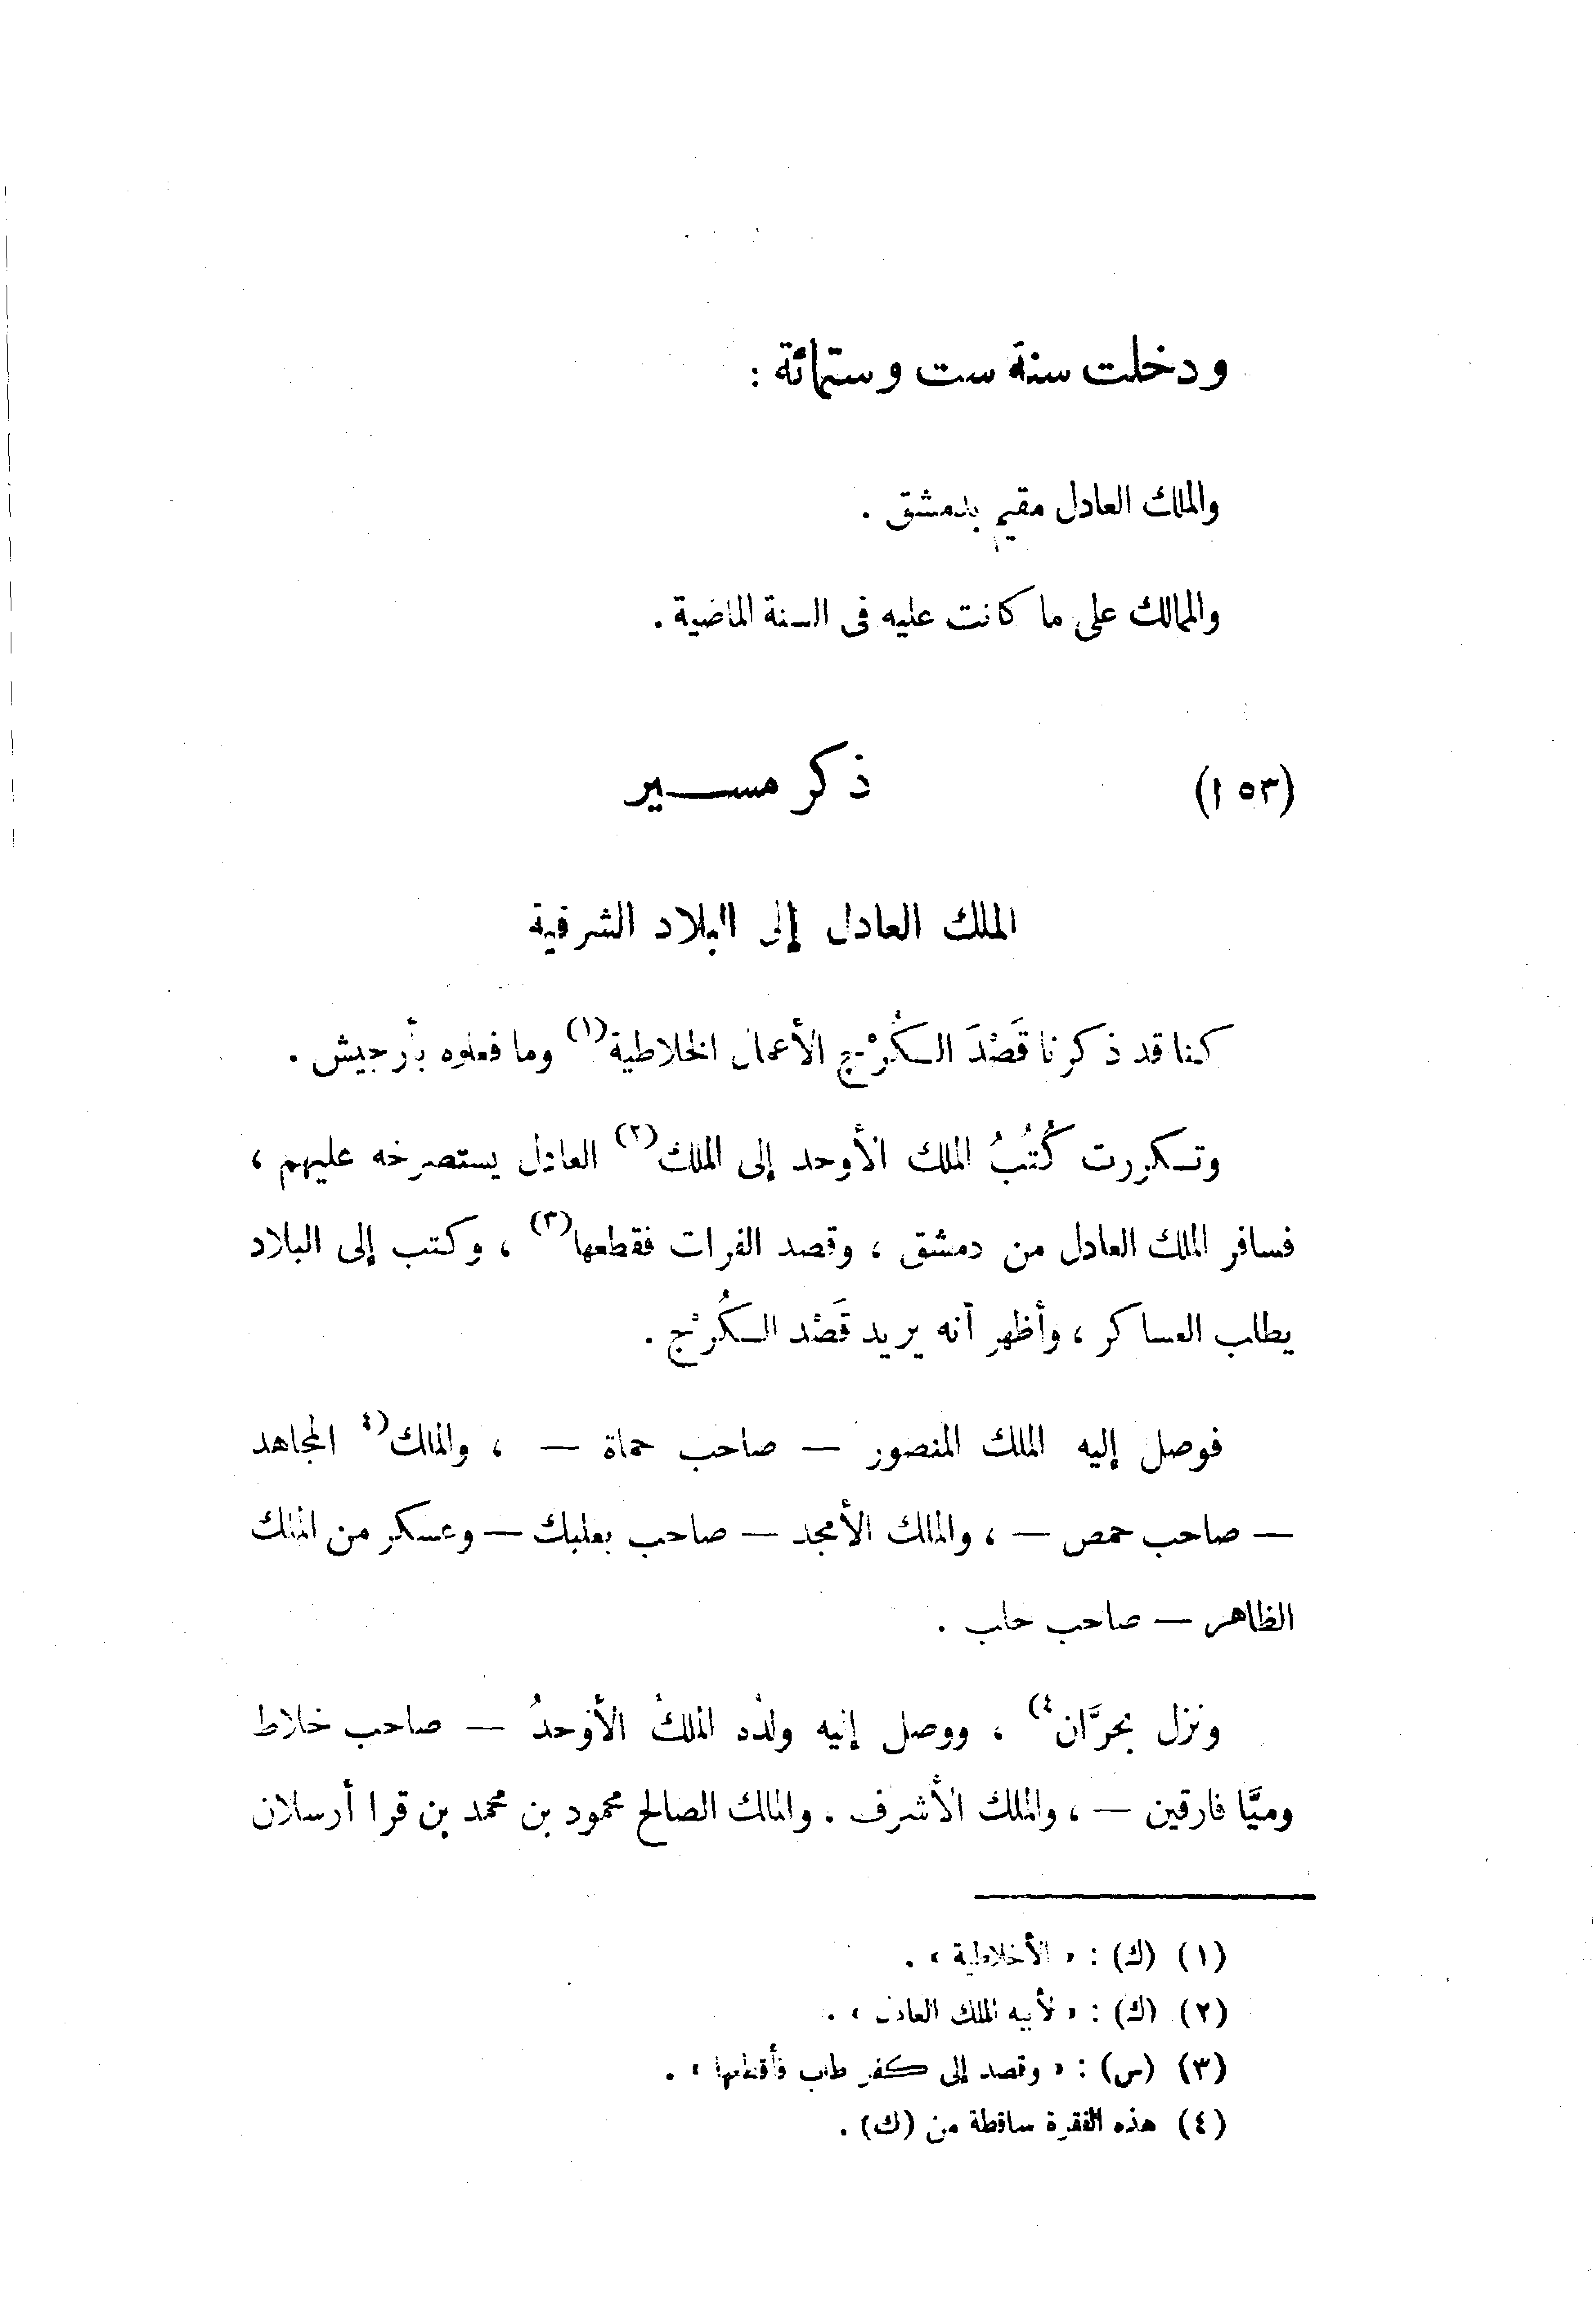 ودخلت سنة ست وستمائة :
والملك العادل مقيم بدمشق .
والممالك على ما كانت عليه فى السنة الماضية .
(١٥٣ ا) ذكر مسير
الملك العادل إلى البلاد الشرقية
كنا قد ذكرنا قَصْدَ الكُرْج الأعمال الخلاطية(١) وما فعلوه بأرجيش .
وتكررت كُتُبُ الملك الأوحد إلى الملك(٢) العادل يستصرخه عليهم ،
فسافر الملك العادل من دمشق ، وقصد الفرات فقطعها(٣) ، وكتب إلى البلاد
يطلب العساكر ، وأظهر أنه يريد قَصْد الكُرْج .
فوصل إليه الملك المنصور — صاحب حماة — ، والملك(٤ المجاهد
— صاحب حمص — ، والملك الأمجد — صاحب بعلبك — وعسكر من الملك
الظاهر — صاحب حلب .
ونزل بحرَّان٤) ، ووصل إليه ولدُه الملكُ الأوحدُ — صاحب خلاط
وميَّا فارقين — ، والملك الأشرف . والملك الصالح محمود بن محمد بن قرا أرسلان
(١) (ك) : « الأخلاطية » .
(٢) (ك) : « لأبيه الملك العادل » .
(٣) (س) : « وقصد إلى كفر طاب فأقطعها » .
(٤) هذه الفقرة ساقطة من (ك) .